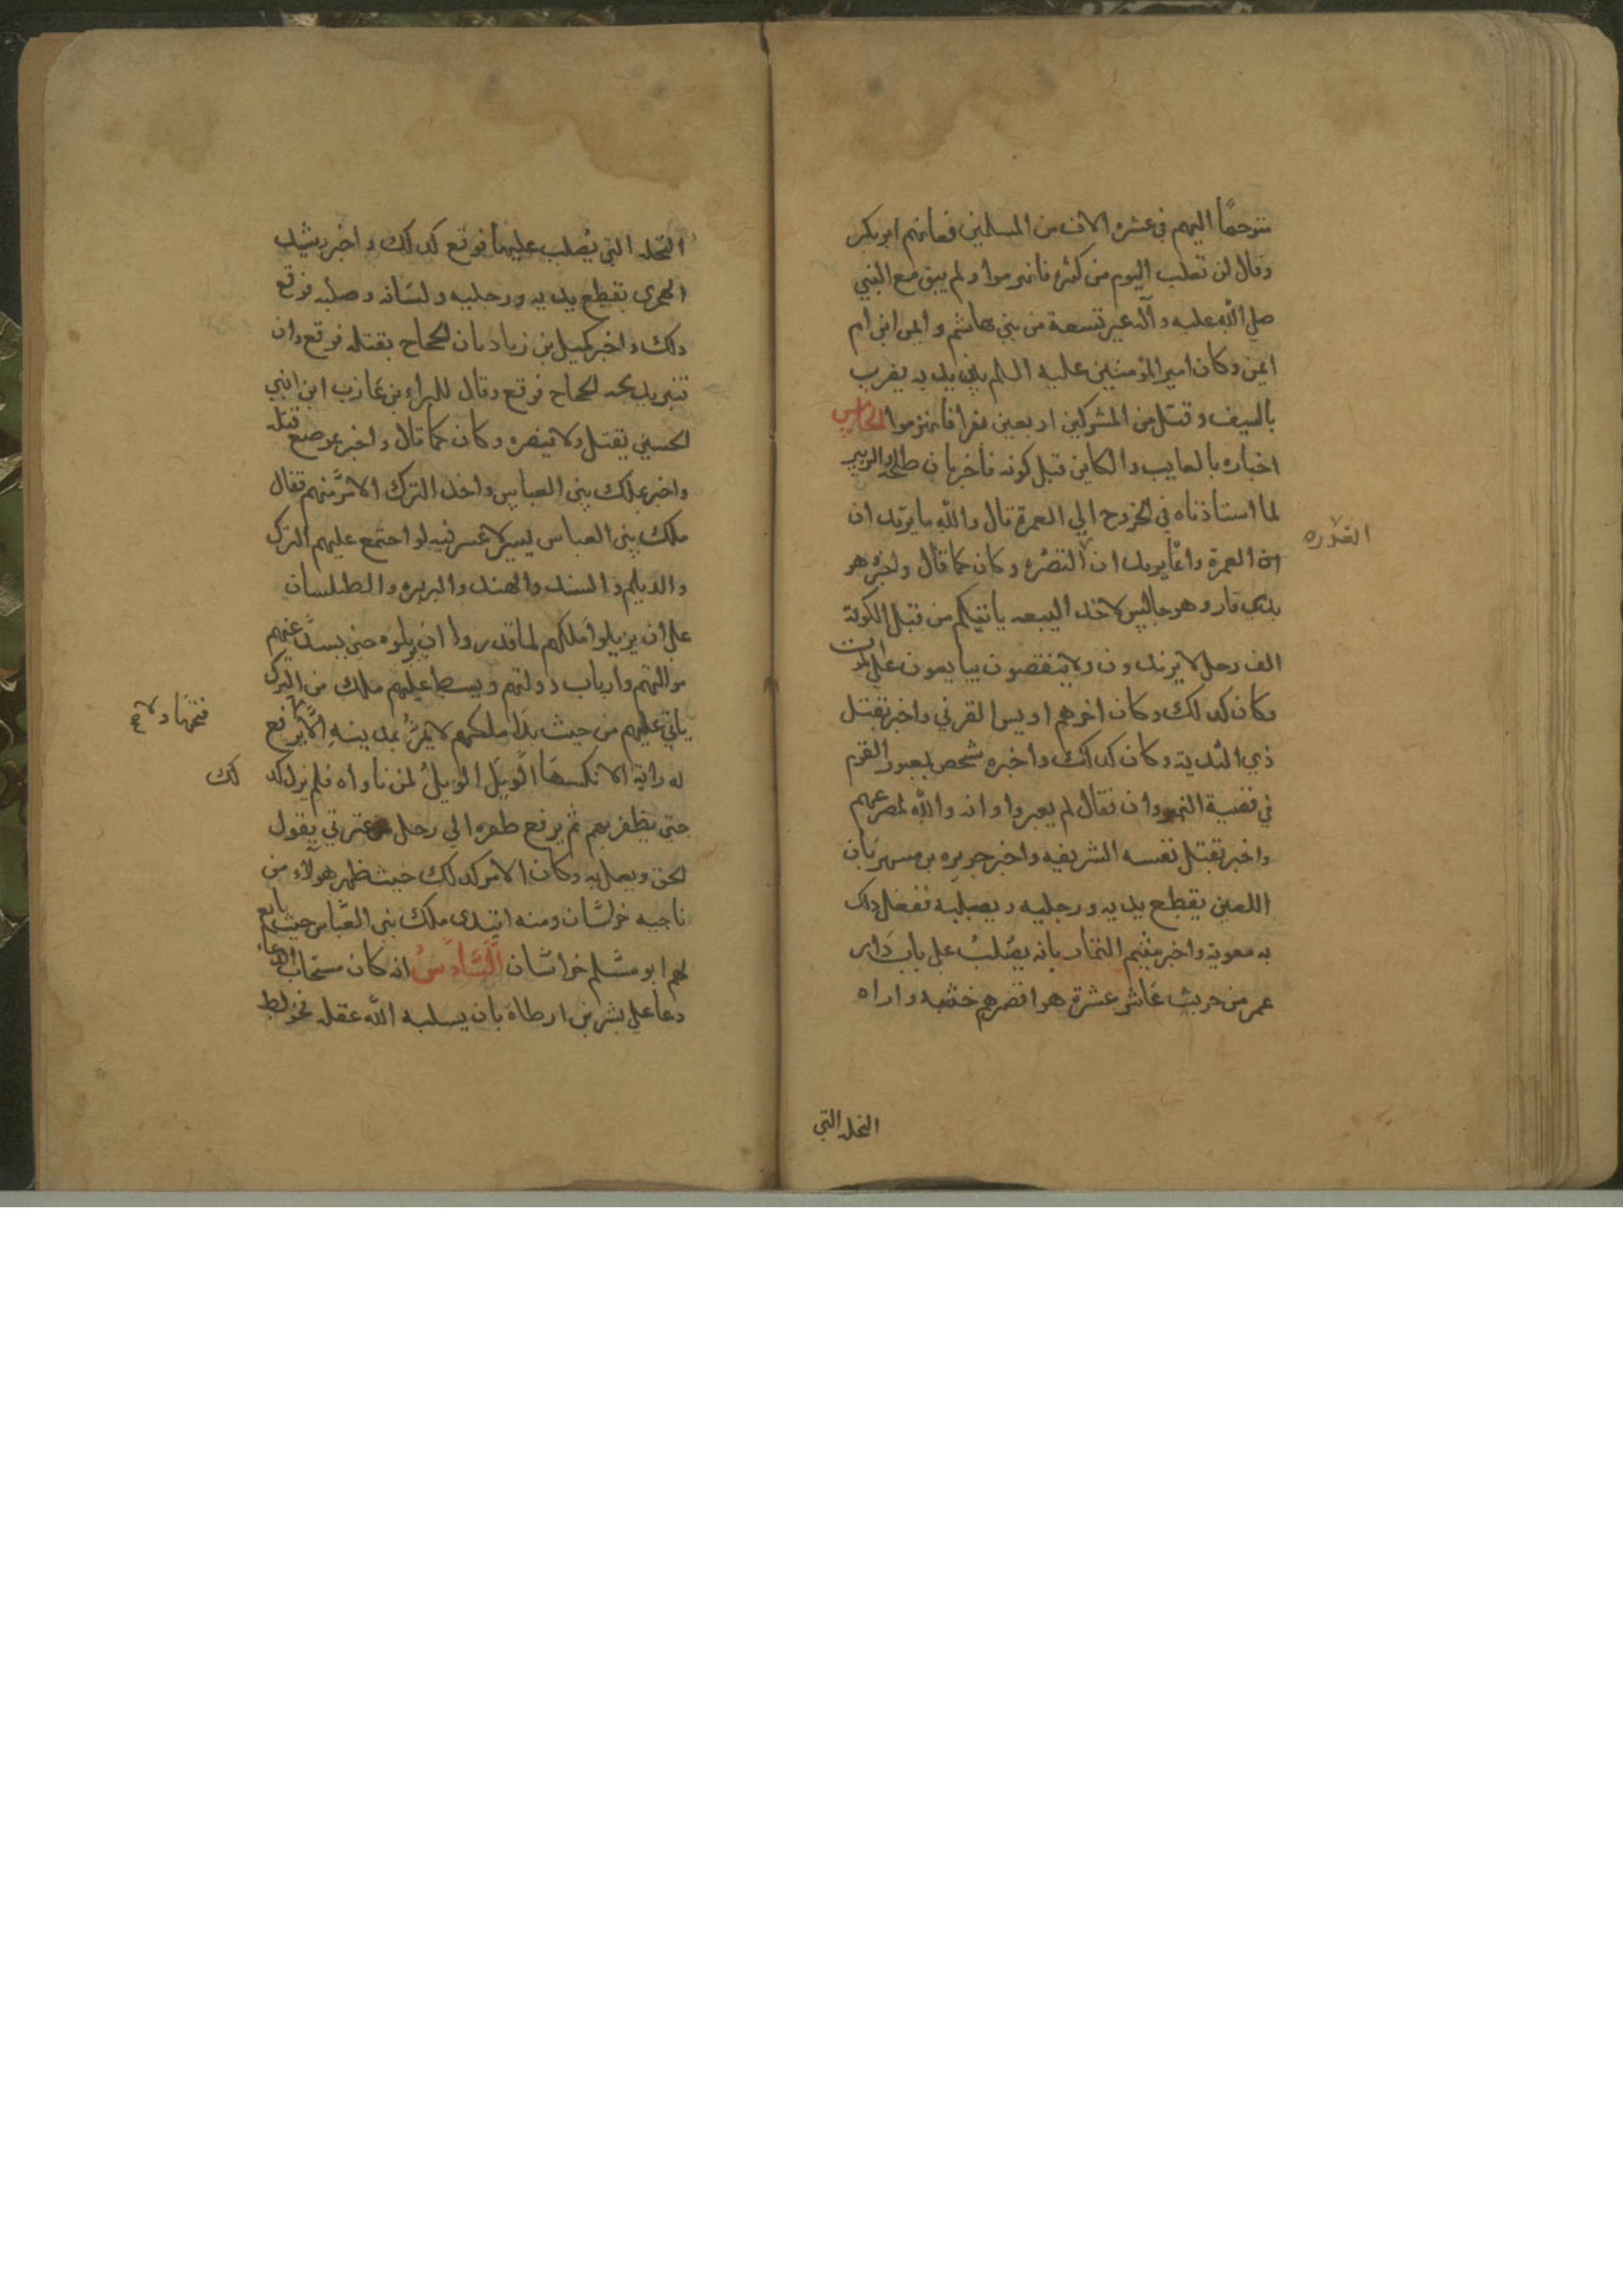 متوجها اليهم في عشره الاف من المسلمين فعانهم ابوبكر
وقال لن نغلب اليوم من كثره فانهزموا ولم يبق مع النبي
صلى الله عليه وآله غير تسعة من بني هاشم و ايمن ابن ام
ايمن وكان امير المؤمنين عليه السلم بين يديه يضرب
بالسيف وقتل من المشركين اربعين نفرا فانهزموا الخامس
اخباره بالغايب والكاين قبل كونه فاخبر بان طلحه والزبير
لما استاذناه في الخروج الي العمرة قال والله ما يريدان
العمرة وانما يريدان البصره وكان كما قال واخبر وهو
بذي قار وهو جالس لاخذ البيعه ياتيكم من قبل الكوفة
الف رجل لا يزيدون ولا ينقصون يبايعون علي الموت
وكان كذلك وكان اخرهم اويس القرني واخبر بقتل
ذي الثدية وكان كذلك واخبره شخص بعبور القوم
في قضية النهروان فقال لم يعبروا وانه والله لمصرعهم
واخبر بقتل نفسه الشريفه واخبر جويره بن مسهر بان
اللعين يقطع يديه ورجليه ويصلبه ففعل ذلك
به معوية واخبر ميثم التمار بانه يصلب على باب دار
عمر من حريث عاشر عشرة هو اقصرهم خشبه واراه
الغدره
النخله التي
النخله التي يصلب عليها فوقع كذلك واخبر رشيد
الهجري بقطع يديه ورجليه ولسانه وصلبه فوقع
ذلك واخبر كميل بن زياد بان الحجاج يقتله فوقع وان
قنبر يذبحه الحجاج فوقع وقال للبراء بن عازب ابن ابني
الحسين يقتل ولا تنصره وكان كما قال واخبر بموضع قتله
واخبر بملك بني العباس واخذ الترك الامر منهم فقال
ملك بني العباس يسر لا عسر فيه لو اجتمع عليهم الترك
والديلم والسند والهند والبربره والطيلسان
على ان يزيلوا ملكهم لما قدروا ان يزيلوه حتى يشذ عنهم
مواليهم وارباب دولتهم ويسلط عليهم ملك من الترك
ياتي عليهم من حيث بدا ملكهم لا يمر بمدينة الا ولا ترفع
له راية الا نكسها الويل الويل لمن ناواه فلم يزل كذ
حتى يظفر بهم ثم يرفع ظفره الي رجل من عترتي يقول
الحق ويعمل به وكان الامر كذلك حيث ظهر هولاء من
ناحيه خراسان ومنه ابتدى ملك بني العباس حيث بايع
لهم ابو مسلم خراسان السادس انه كان مستجاب الدعاء
دعا علي بشر بن ارطاة بان يسلبه الله عقله فخولط
فتحها ولا
لك